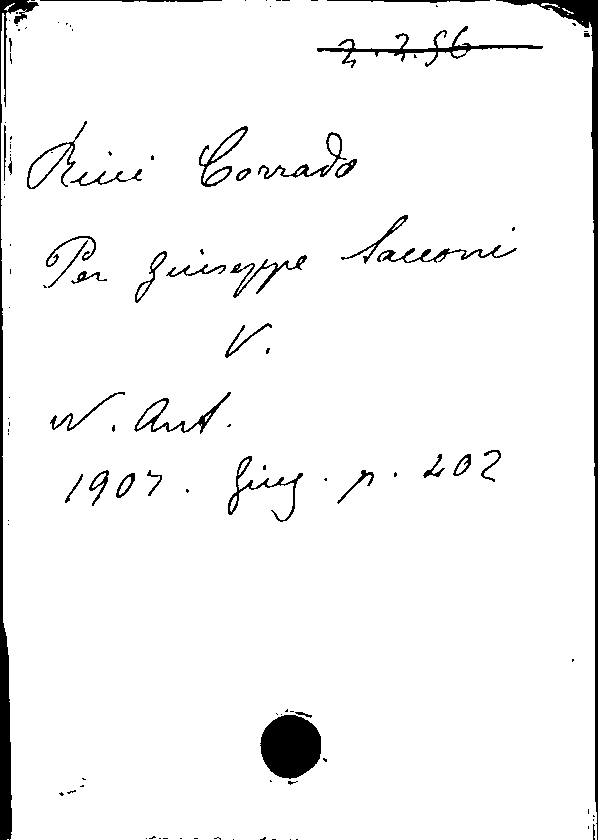 2.2.56
Ricci Corrado
Per Giuseppe Sacconi
V.
N. Ant.
1907. Giug. p. 402